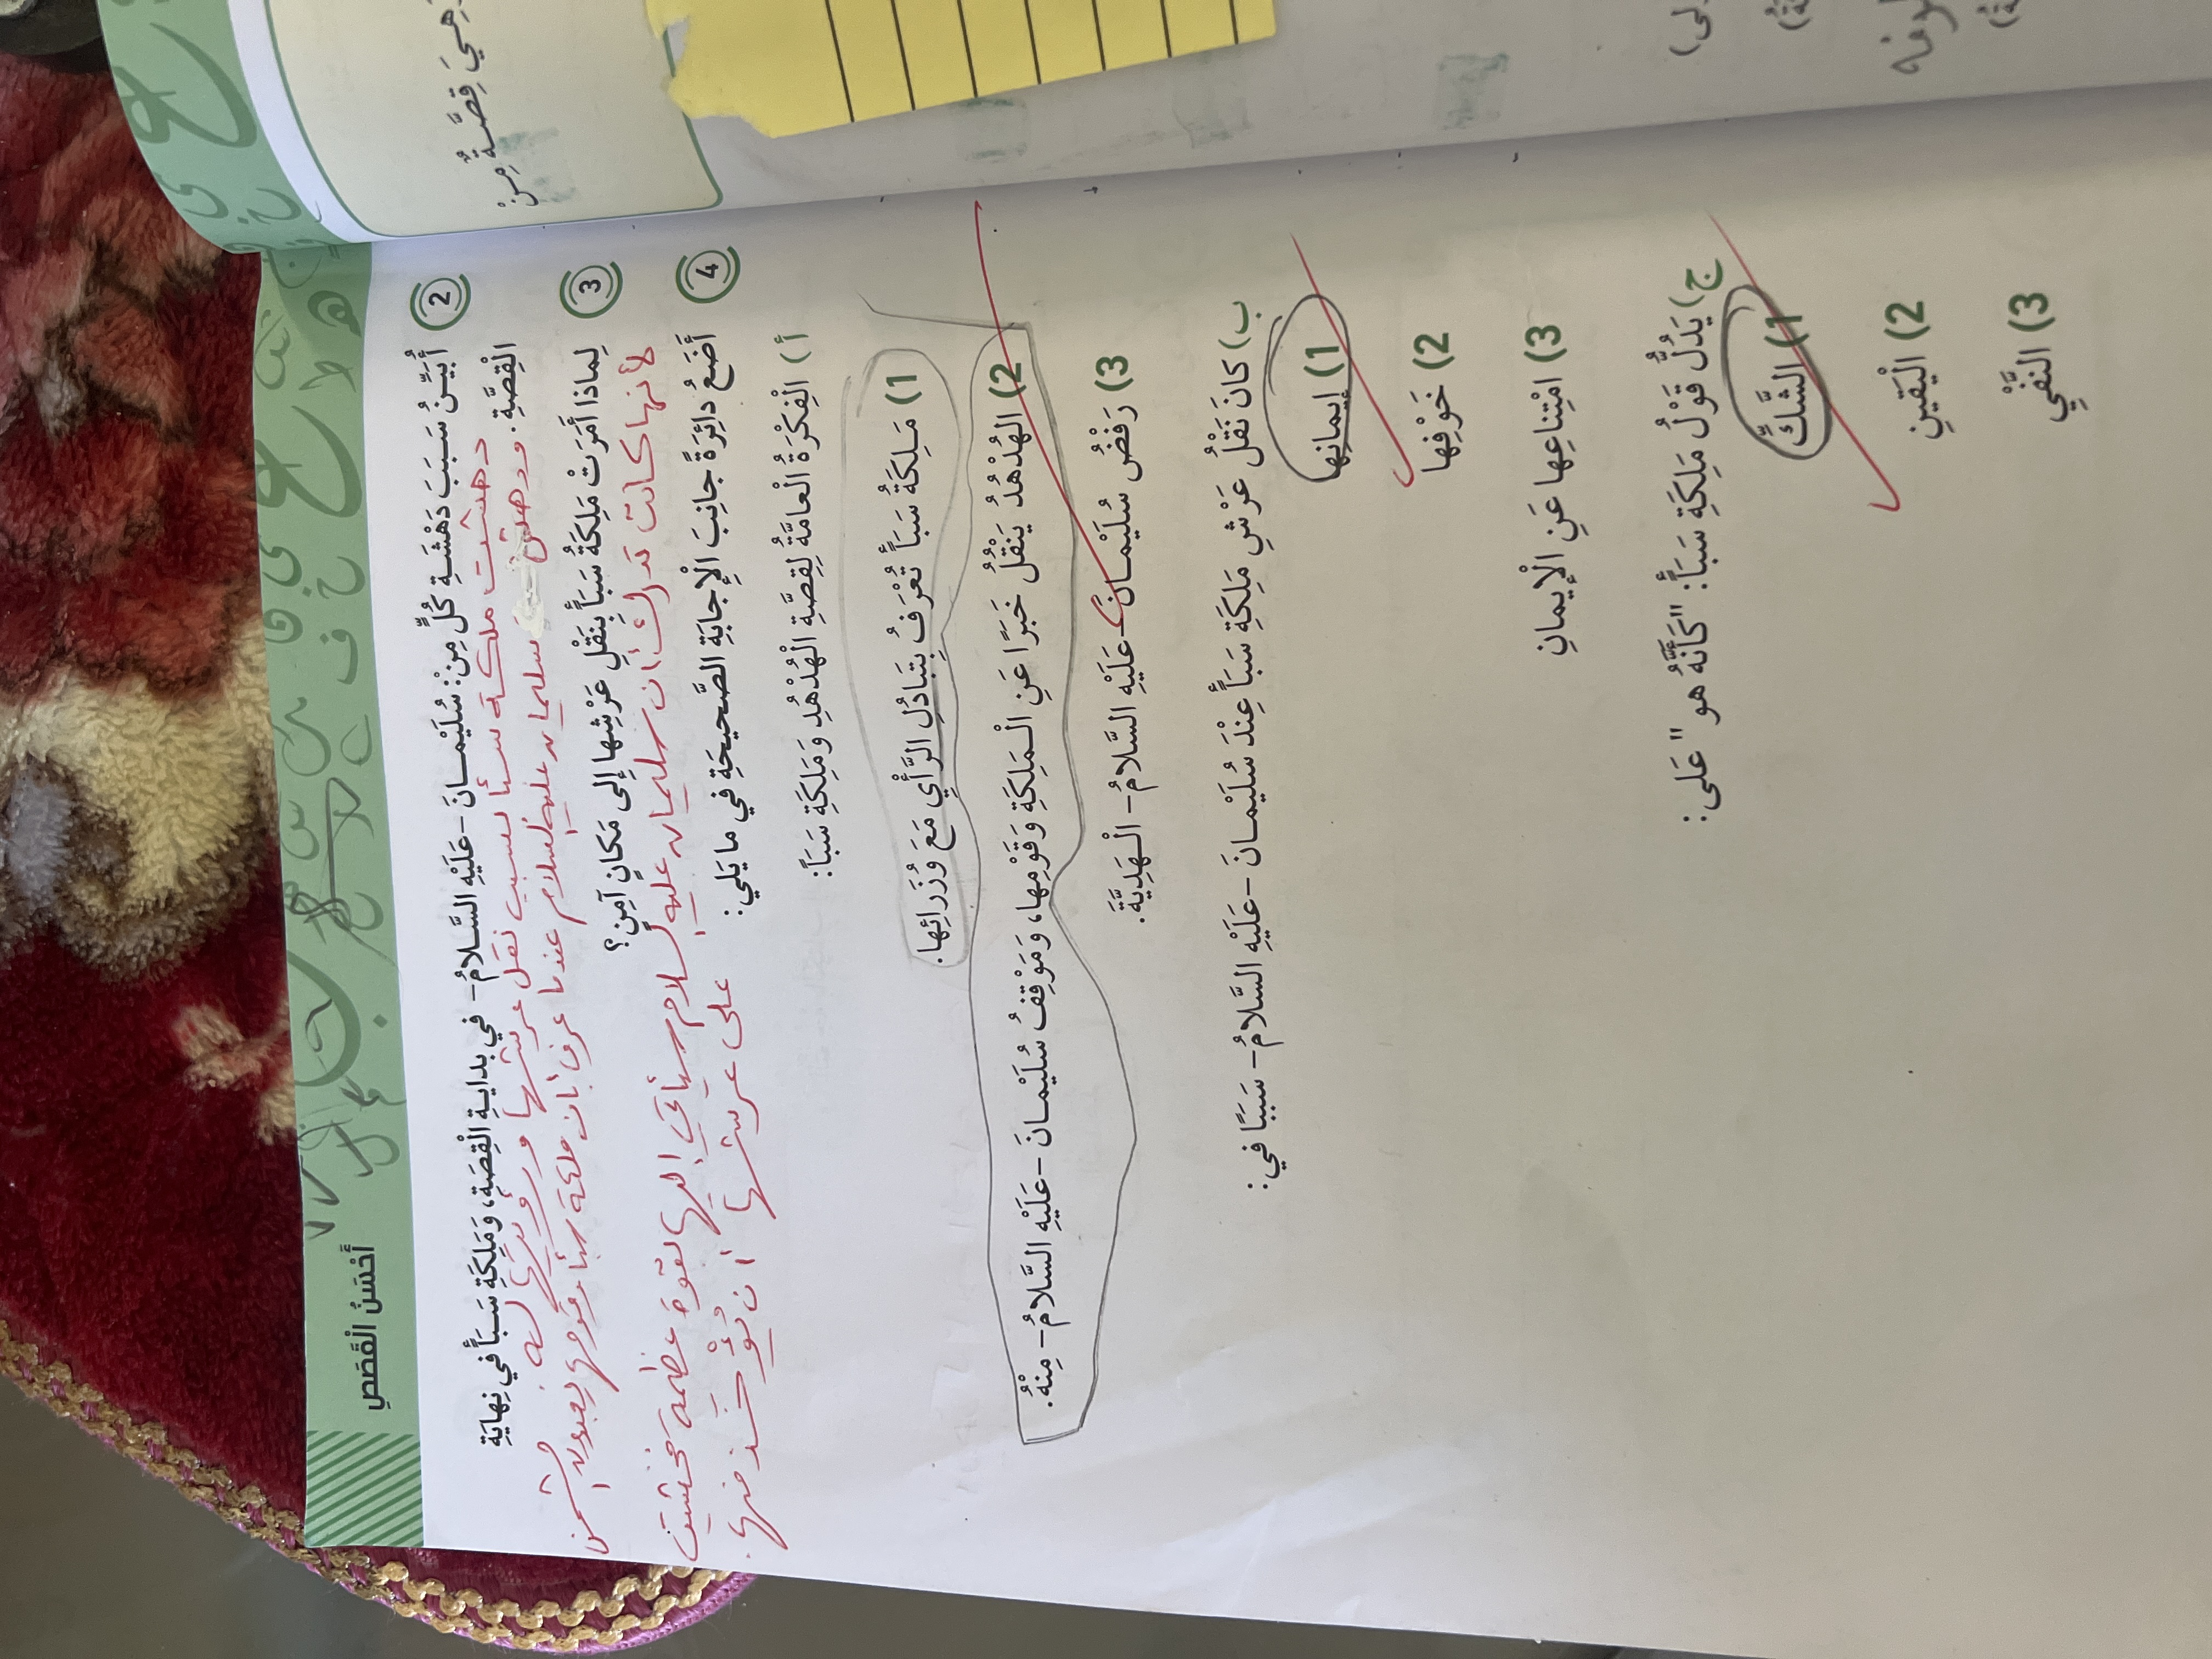 أَحْسَنُ الْقَصَصِ
2 أُبَيِّنُ سَبَبَ دَهْشَةِ كُلٍّ مِنْ: سُلَيْمانَ -عَلَيْهِ السَّلامُ- في بِدايَةِ الْقِصَّةِ، وَمَلِكَةِ سَبَأٍ في نِهايَةِ
الْقِصَّةِ.
دهشت ملكة سبأ بسبب نقل عرشها ورؤيتها له.
ودهش سليمان عليه السلام عندما عرف بأن ملكة سبأ وقومها يعبدون الشمس
3 لِماذا أَمَرَتْ مَلِكَةُ سَبَأٍ بِنَقْلِ عَرْشِها إِلى مَكانٍ آمِنٍ؟
لأنها كانت تدرك ان سليمان عليه السلام سيأتي اليها بقوة عظمة فخشيت
على عرشها ان يُؤْخَذ منها.
4 أَضَعُ دائِرَةً جانِبَ الْإِجابَةِ الصَّحيحَةِ في ما يَلي:
أ) الْفِكْرَةُ الْعامَّةُ لِقِصَّةِ الْهُدْهُدِ وَمَلِكَةِ سَبَأٍ:
1) مَلِكَةُ سَبَأٍ تُعْرَفُ بِتَبادُلِ الرَّأْيِ مَعَ وُزَرائِها.
2) الهُدْهُدُ يَنْقُلُ خَبَرًا عَنِ الْمَلِكَةِ وَقَوْمِها، وَمَوْقِفُ سُلَيْمانَ -عَلَيْهِ السَّلامُ- مِنْهُ.
3) رَفْضُ سُلَيْمانَ -عَلَيْهِ السَّلامُ- الْهَدِيَّةَ.
ب) كانَ نَقْلُ عَرْشِ مَلِكَةِ سَبَأٍ عِنْدَ سُلَيْمانَ -عَلَيْهِ السَّلامُ- سَبَبًا في:
1) إيمانِها
2) خَوْفِها
3) امْتِناعِها عَنِ الْإيمانِ
ج) يَدُلُّ قَوْلُ مَلِكَةِ سَبَأٍ: "كَأَنَّهُ هو" عَلى:
1) الشَّكِّ
2) الْيَقينِ
3) النَّفْيِ
هِيَ قِصَّةٌ مِنْ